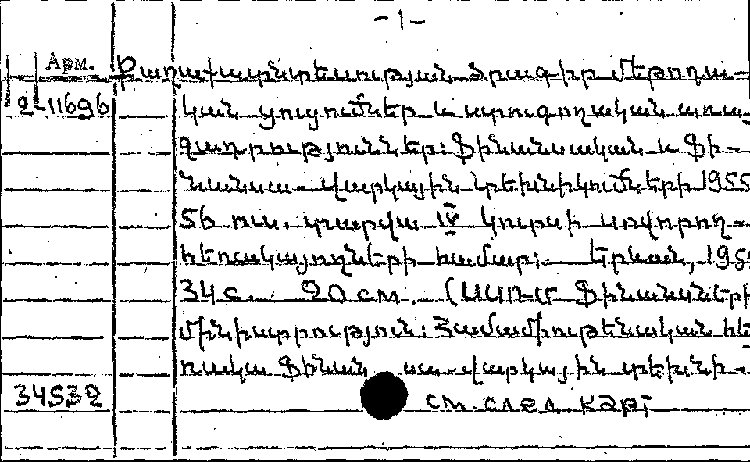 -1-
Арм.
2-11696
Քաղաքատնտեսության ծրագիր մեթոդա-
կան ցուցումներ և ստուգողական առաջ
չադրություններ: Ֆինանսական և ֆի-
նանսա-վարկային տեխնիկումների 1955
56 ուս. տարվա IV կուրսի սովորող-
հեռակայողների համար: Երևան, 195
34 с. 20 см. (ՍՍՌՄ Ֆինանսների
մինիստրություն: Համամիութենական հե
ռակա ֆինան սա-վարկային տեխնի-
34532
см. след. карт